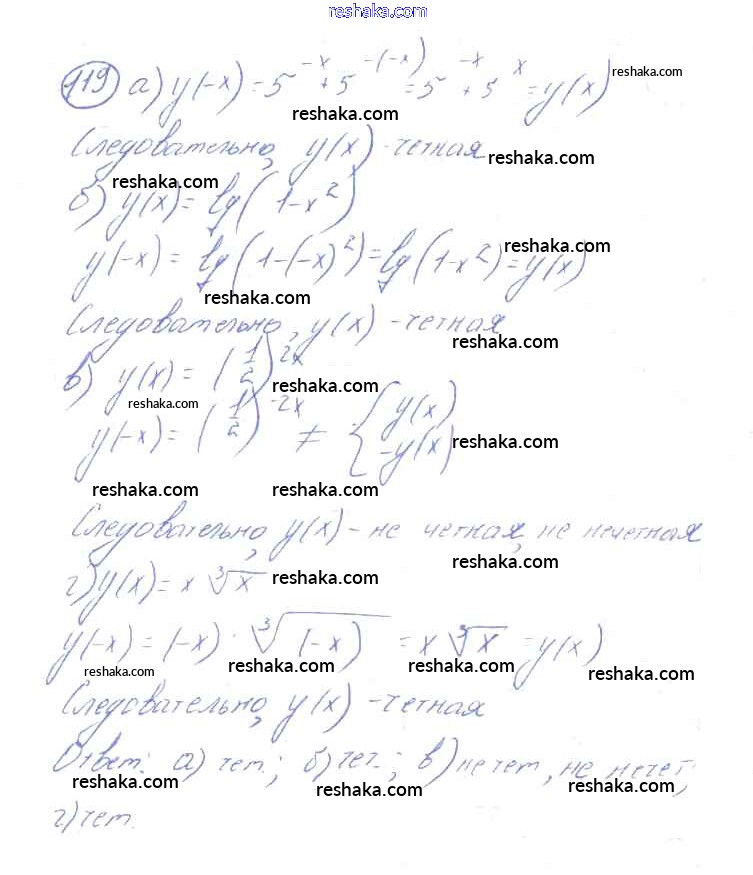 reshaka.com
119 а) y(-x) = 5^-x + 5^-(-x) = 5^-x + 5^x = y(x) reshaka.com
reshaka.com
Следовательно, y(x) - четная reshaka.com
reshaka.com
б) y(x) = lg(1-x²)
y(-x) = lg(1-(-x)²) = lg(1-x²) = y(x) reshaka.com
reshaka.com
Следовательно, y(x) - четная reshaka.com
в) y(x) = (1/2)^2x reshaka.com
reshaka.com
y(-x) = (1/2)^-2x ≠ { y(x) -y(x) reshaka.com
reshaka.com reshaka.com
Следовательно, y(x) - не четная, не нечетная
reshaka.com
г) y(x) = x ∛x reshaka.com
y(-x) = (-x) · ∛(-x) = x ∛x = y(x)
reshaka.com reshaka.com reshaka.com reshaka.com
Следовательно, y(x) - четная
Ответ: а) чет.; б) чет.; в) не чет, не нечет;
reshaka.com reshaka.com reshaka.com
г) чет.